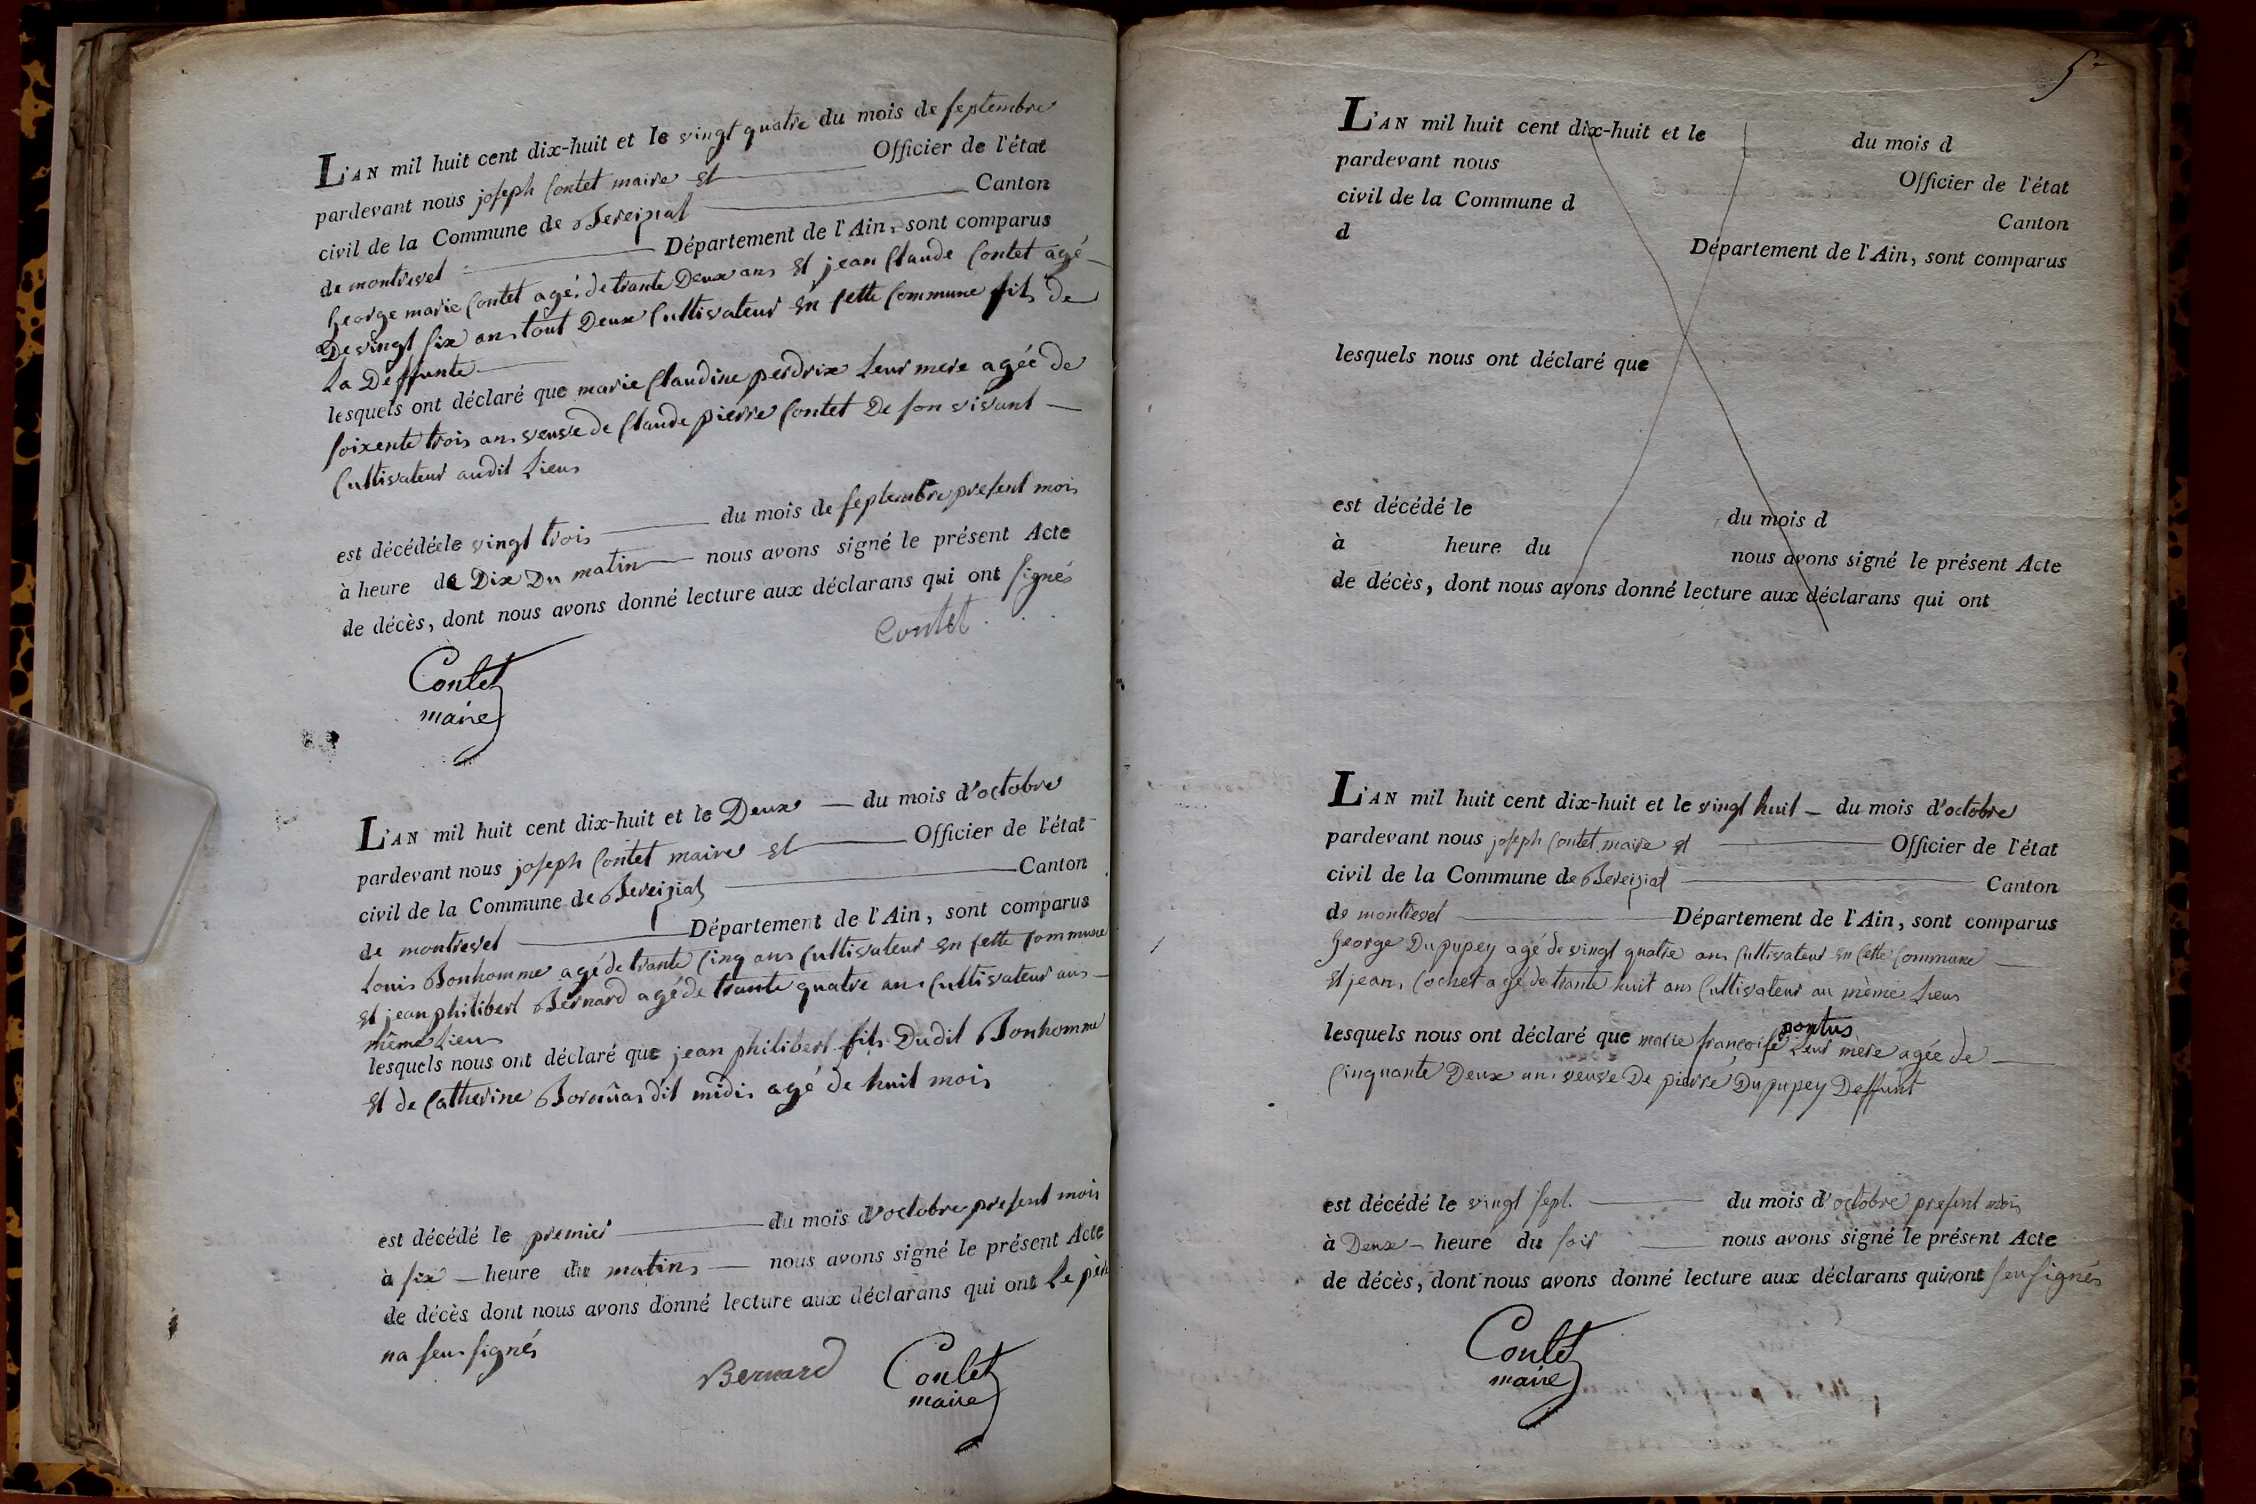 L'AN mil huit cent dix-huit et le vingt quatre du mois de septembre
pardevant nous joseph Contet maire et Officier de l'état
civil de la Commune de Bereiziat Canton
de montrevel Département de l'Ain, sont comparus
George marie Contet agé de trante Deux ans et jean Claude Contet agé
De vingt six ans tout Deux Cultivateur en cette Commune fils de
La Deffunte
lesquels ont déclaré que marie Claudine perdrix Leur mere agée de
soixente trois ans veuve de Claude pierre Contet De son vivant
Cultivateur audit Lieus
est décédée le vingt trois du mois de septembre present mois
à heure de Dix Du matin nous avons signé le présent Acte
de décès, dont nous avons donné lecture aux déclarans qui ont signés
Contet
Contet
maire
L'AN mil huit cent dix-huit et le Deux du mois d'octobre
pardevant nous joseph Contet maire et Officier de l'état
civil de la Commune de Bereiziat Canton
de montrevel Département de l'Ain, sont comparus
Louis Bonhomme agé de trante Cinq ans Cultivateur en cette Commune
et jean philibert Bernard agé de trante quatre ans Cultivateur aus
même Lieus
lesquels nous ont déclaré que jean philibert fils Dudit Bonhomme
et de Catherine dit midi agé de huit mois
est décédé le premier du mois d'octobre present mois
à six heure du matins nous avons signé le présent Acte
de décès dont nous avons donné lecture aux déclarans qui ont Le père
na seus signés
Bernard
Contet
maire
5e
L'AN mil huit cent dix-huit et le du mois d
pardevant nous Officier de l'état
civil de la Commune d Canton
d Département de l'Ain, sont comparus
lesquels nous ont déclaré que
est décédé le du mois d
à heure du nous avons signé le présent Acte
de décès, dont nous avons donné lecture aux déclarans qui ont
L'AN mil huit cent dix-huit et le vingt huit du mois d'octobre
pardevant nous joseph Contet maire et Officier de l'état
civil de la Commune de Bereiziat Canton
de montrevel Département de l'Ain, sont comparus
George Dupupey agé de vingt quatre ans Cultivateur en Cette Commune
et jean Cochet agé de trante huit ans Cultivateur au même Lieus
pontus
lesquels nous ont déclaré que marie françoise Leur mère agée de
Cinquante Deux ans veuve De pierre Dupupey Deffunt
est décédé le vingt sept du mois d'octobre present mois
à Deux heure du soir nous avons signé le présent Acte
de décès, dont nous avons donné lecture aux déclarans qui nont seu signés
Contet
maire